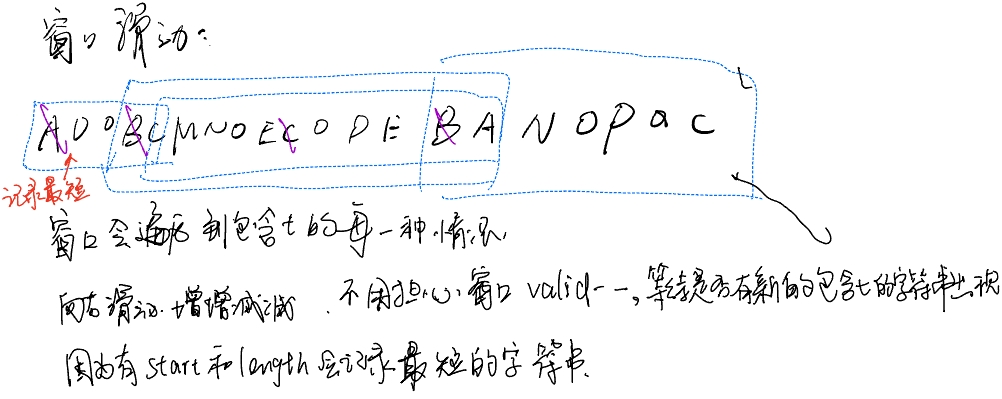 窗口滑动:
ADOBCMNOECODEBANOPQC
记录最短
窗口会遍历到包含t的每一种情况.
向右滑动.增增减减.不用担心窗口valid--,等待是否有新的包含t的字符串出现
因为有start和length会记录最短的字符串.